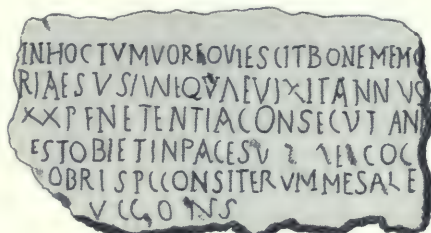 INHOCTVMVOREQVIESCITBONEMEMO
RIAESVS QVAEVIXITANNVS
XXPENETENTIACONSECVTAN
ESTOBIETINPACESV COC
OBRISPCCONSITERVMMESALE
VCCONS